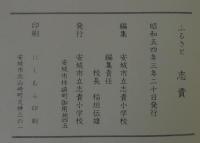 ふるさと 志貴
昭和五四年三月二十日発行
編集 安城市立志貴小学校
編集責任
校長 稲垣伝雄
発行 安城市立志貴小学校
安城市柿碕町
印刷 にしむら印刷
安城市北山崎町